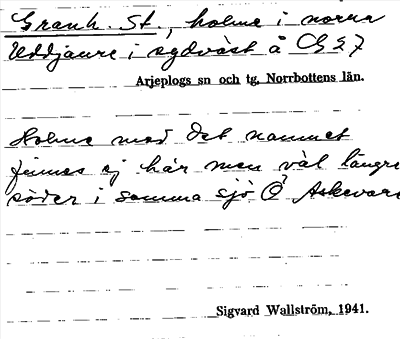 Granh. St., holme i norra
Uddjaure i sydväst å C G 27
Arjeplogs sn och tg, Norrbottens län.
Holme med det namnet
finnes ej här men väl längre
söder i samma sjö
Sigvard Wallström, 1941.